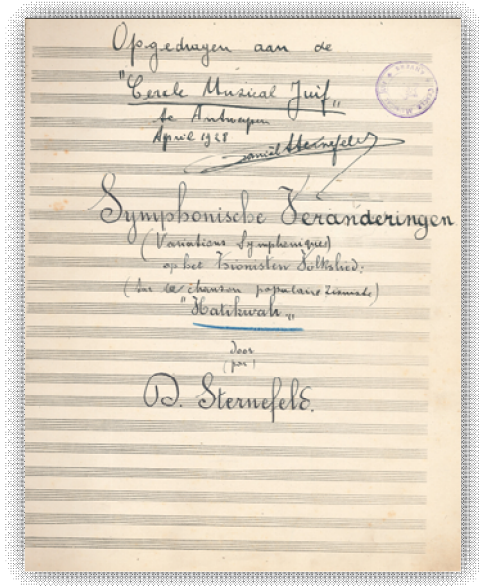 Opgedragen aan de
"Cercle Musical Juif"
te Antwerpen
April 1928
Daniël Sternefeld
Symphonische Veranderingen
(Variations Symphoniques)
op het Zionisten Volkslied:
(sur la chanson populaire Zioniste)
"Hatikwah"
door
(par)
D. Sternefeld.